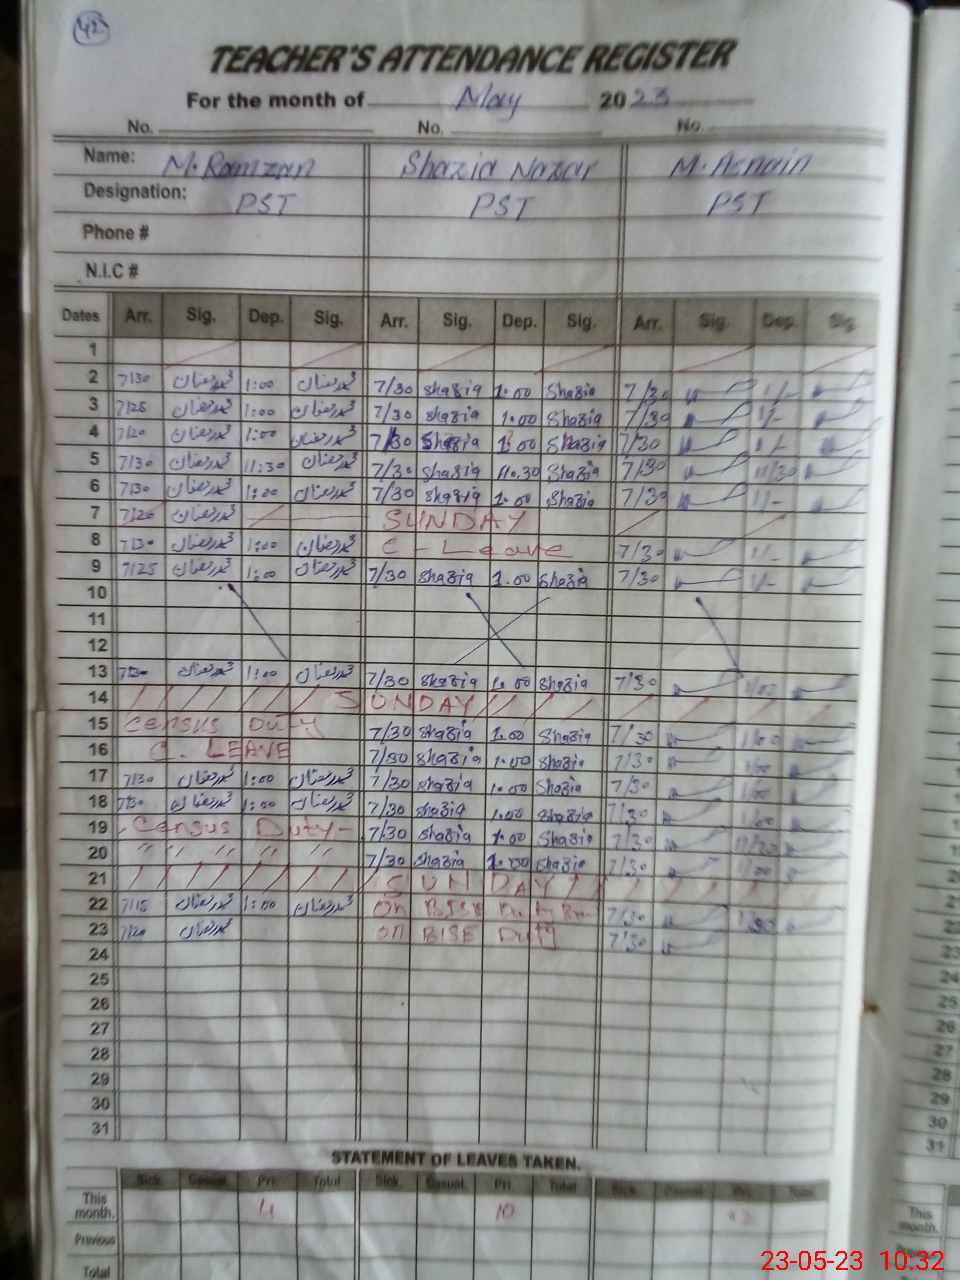 42
TEACHER'S ATTENDANCE REGISTER
For the month of May 2023
No. No. No.
Name: M. Ramzan Shazia Nazar M. Asnain
Designation: PST PST PST
Phone #
N.I.C #
Dates Arr. Sig. Dep. Sig. Arr. Sig. Dep. Sig. Arr. Sig. Dep. Sig.
1
2 7/30 محمد رمضان 1:00 محمد رمضان 7/30 Shazia 1.00 Shazia 7/30 1/-
3 7/25 محمد رمضان 1:00 محمد رمضان 7/30 Shazia 1.00 Shazia 7/30 1/-
4 7/20 محمد رمضان 1:00 محمد رمضان 7/30 Shazia 1.00 Shazia 7/30 1/-
5 7/30 محمد رمضان 11:30 محمد رمضان 7/30 Shazia 11.30 Shazia 7/30 11/30
6 7/30 محمد رمضان 1:00 محمد رمضان 7/30 Shazia 1.00 Shazia 7/30 1/-
7 7/20 محمد رمضان SUNDAY
8 7/30 محمد رمضان 1:00 محمد رمضان C - Leave 7/30 1/-
9 7/25 محمد رمضان 1:00 محمد رمضان 7/30 Shazia 1.00 Shazia 7/30 1/-
10
11
12
13 محمد رمضان 1:00 محمد رمضان 7/30 Shazia 1.00 Shazia 7/30 1/00
14 SUNDAY
15 Census Duty 7/30 Shazia 1.00 Shazia 7/30 1/00
16 C. LEAVE 7/30 Shazia 1.00 Shazia 7/30 1/00
17 7/30 محمد رمضان 1:00 محمد رمضان 7/30 Shazia 1.00 Shazia 7/30 1/00
18 7/30 محمد رمضان 1:00 محمد رمضان 7/30 Shazia 1.00 Shazia 7/30 1/00
19 Census Duty - 7/30 Shazia 1.00 Shazia 7/30
20 " " " " " 7/30 Shazia 1.00 Shazia 7/30 1/00
21 SUNDAY
22 7/15 محمد رمضان 1:00 محمد رمضان On BISE Duty 7/30
23 7/20 محمد رمضان on BISE Duty 7/30
24
25
26
27
28
29
30
31
STATEMENT OF LEAVES TAKEN.
Sick. Casual. Pri. Total Sick. Casual. Pri. Total Sick. Casual. Pri. Total
This month. 4 10
Previous
Total
23-05-23 10:32